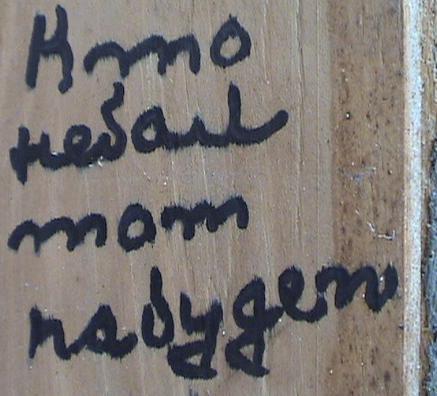 Кто
небыл
тот
пабудет